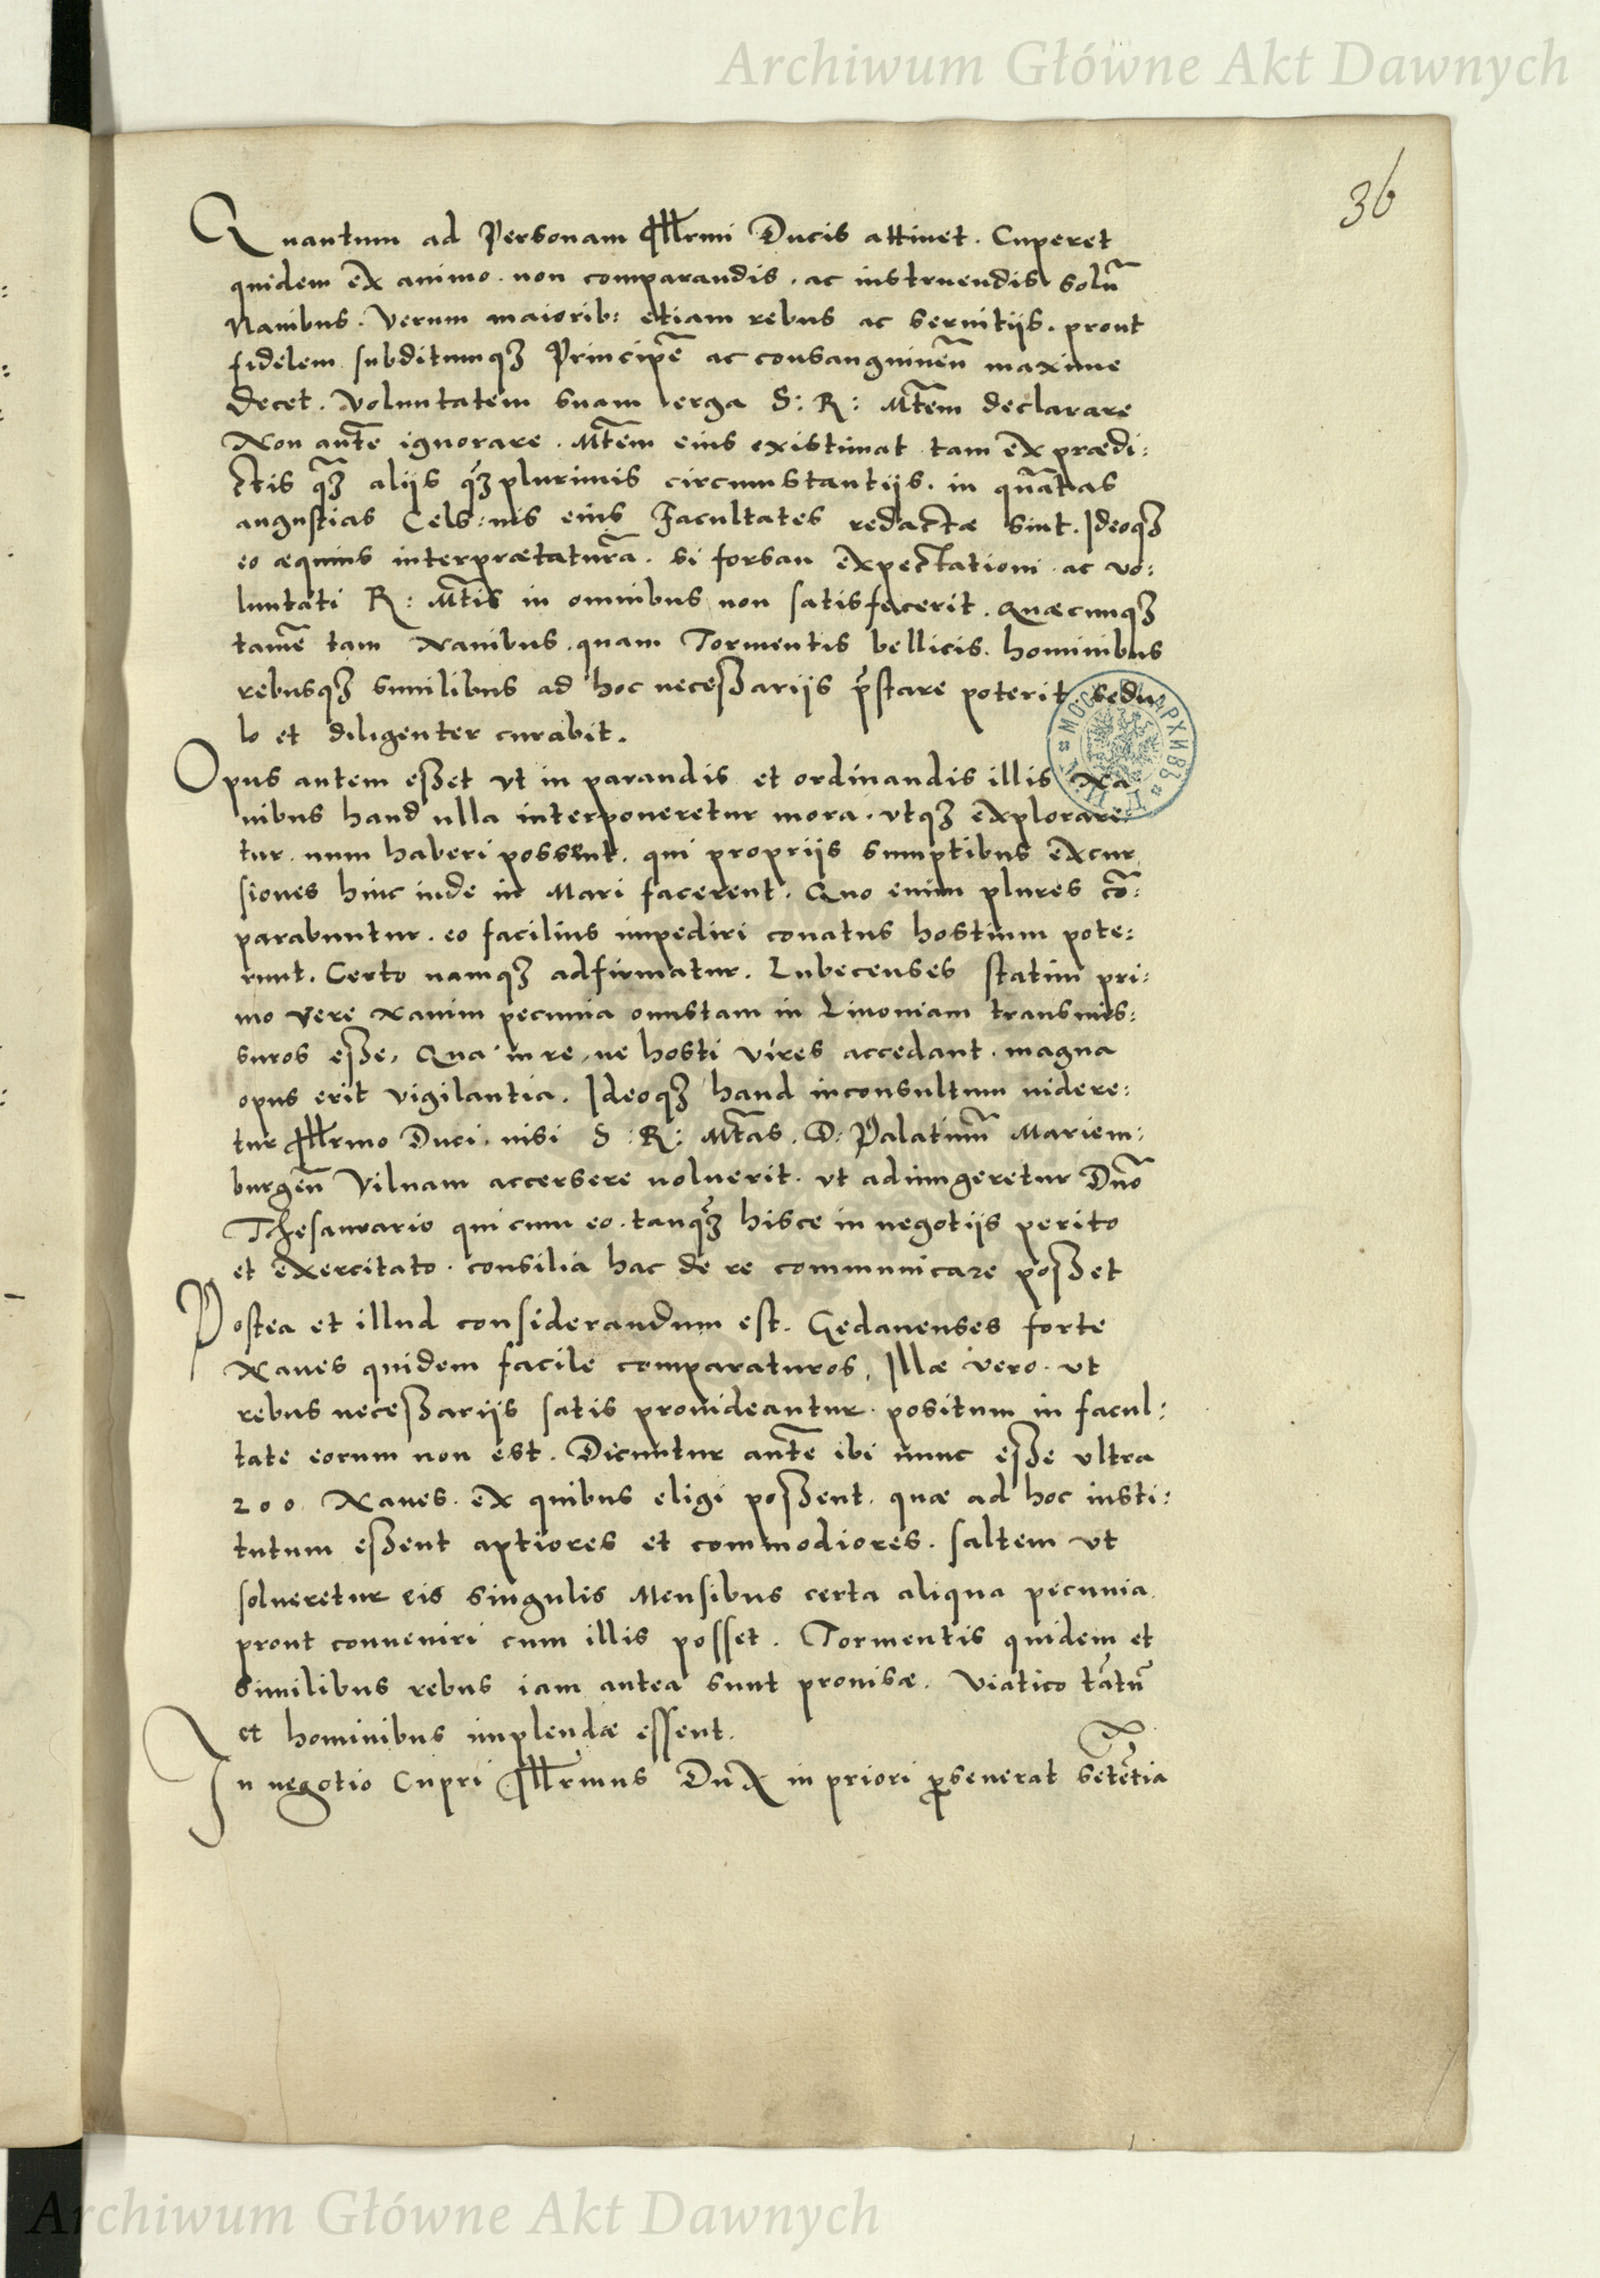 Archiwum Główne Akt Dawnych
36
Quantum ad Personam Illrmi Ducis attinet. Cuperet
quidem ex animo. non comparandis. ac instruendis solũ
Nauibus. Verum maiorib: etiam rebus ac seruitijs. prout
fidelem subditumqȝ Principẽ ac consanguineũ maxime
decet. Voluntatem suam erga S: R: Mtẽm declarare
Non autẽ ignorare. Mtẽm eius existimat tam ex prædi:
ctis qȝ̃ alijs qȝ̃plurimis circumstantijs. in quãtas
angustias Cels:nis eius Facultates redactæ sint. Ideoqȝ
eo æquius interprætaturã. si forsan expectationi ac vo:
luntati R: Mtĩs in omnibus non satisfecerit. Quæcunqȝ
tamẽ tam Nauibus. quam Tormentis bellicis. hominibus
rebusqȝ similibus ad hoc necessarijs p̃stare poterit. sedu
lo et diligenter curabit.
Opus autem esset vt in parandis et ordinandis illis Na
uibus haud ulla interponeretur mora. vtqȝ explorare:
tur. num haberi possent. qui proprijs sumptibus excur
siones hinc inde in Mari facerent. Quo enim plures cõ:
parabuntur. eo facilius impediri conatus hostium pote:
runt. Certo namqȝ adfirmatur. Lubecenses statim pri:
mo vere Nauim pecunia onustam in Liuoniam transmis:
suros esse, Qua in re, ne hosti vires accedant. magna
opus erit vigilantia. Ideoqȝ haud inconsultum uidere:
tur Illrmo Duci. nisi S: R: Mtãs. D: Palatinũ Mariem:
burgeñ Vilnam accersere uoluerit. vt adiungeretur Dnõ
Thesaurario qui cum eo. tanqȝ̃ hisce in negotijs perito
et exercitato. consilia hac de re communicare posset
Postea et illud considerandum est. Gedanenses forte
Naues quidem facile comparaturos, Illæ vero. ut
rebus necessarijs satis prouideantur. positum in facul:
tate eorum non est. Dicuntur autẽ ibi nunc esse ultra
200 Naues. ex quibus eligi possent. quæ ad hoc insti:
tutum essent aptiores et commodiores. saltem ut
solueretur eis singulis Mensibus certa aliqua pecunia.
prout conueniri cum illis posset. Tormentis quidem et
similibus rebus iam antea sunt prouisæ. Viatico tãtũ
et hominibus implendæ essent.
In negotio Cupri Illrmus Dux in priori ꝑseuerat setẽtia
Archiwum Główne Akt Dawnych